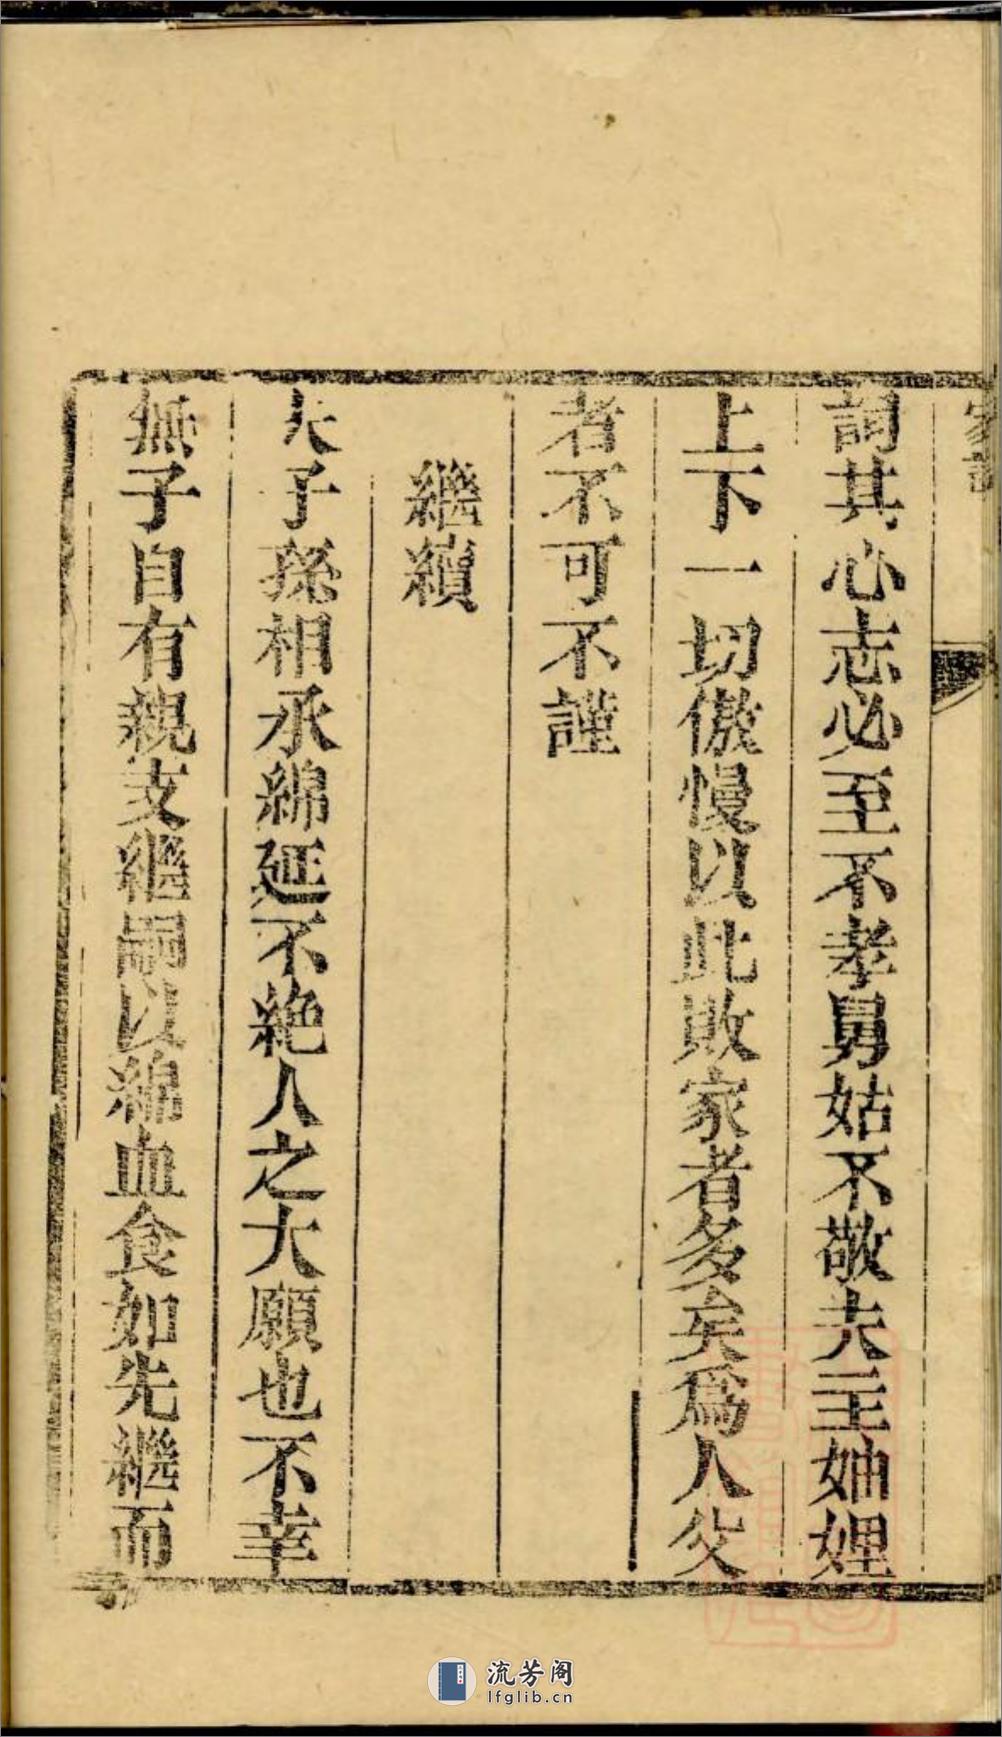 家訓
詞其心志必至不孝舅姑不敬夫主妯娌
上下一切傲慢以此敗家者多矣為人父
者不可不謹
繼續
夫子孫相承綿延不絕人之大願也不幸
無子自有親支繼嗣以綿血食如先繼而
流芳阁
lfglib.cn